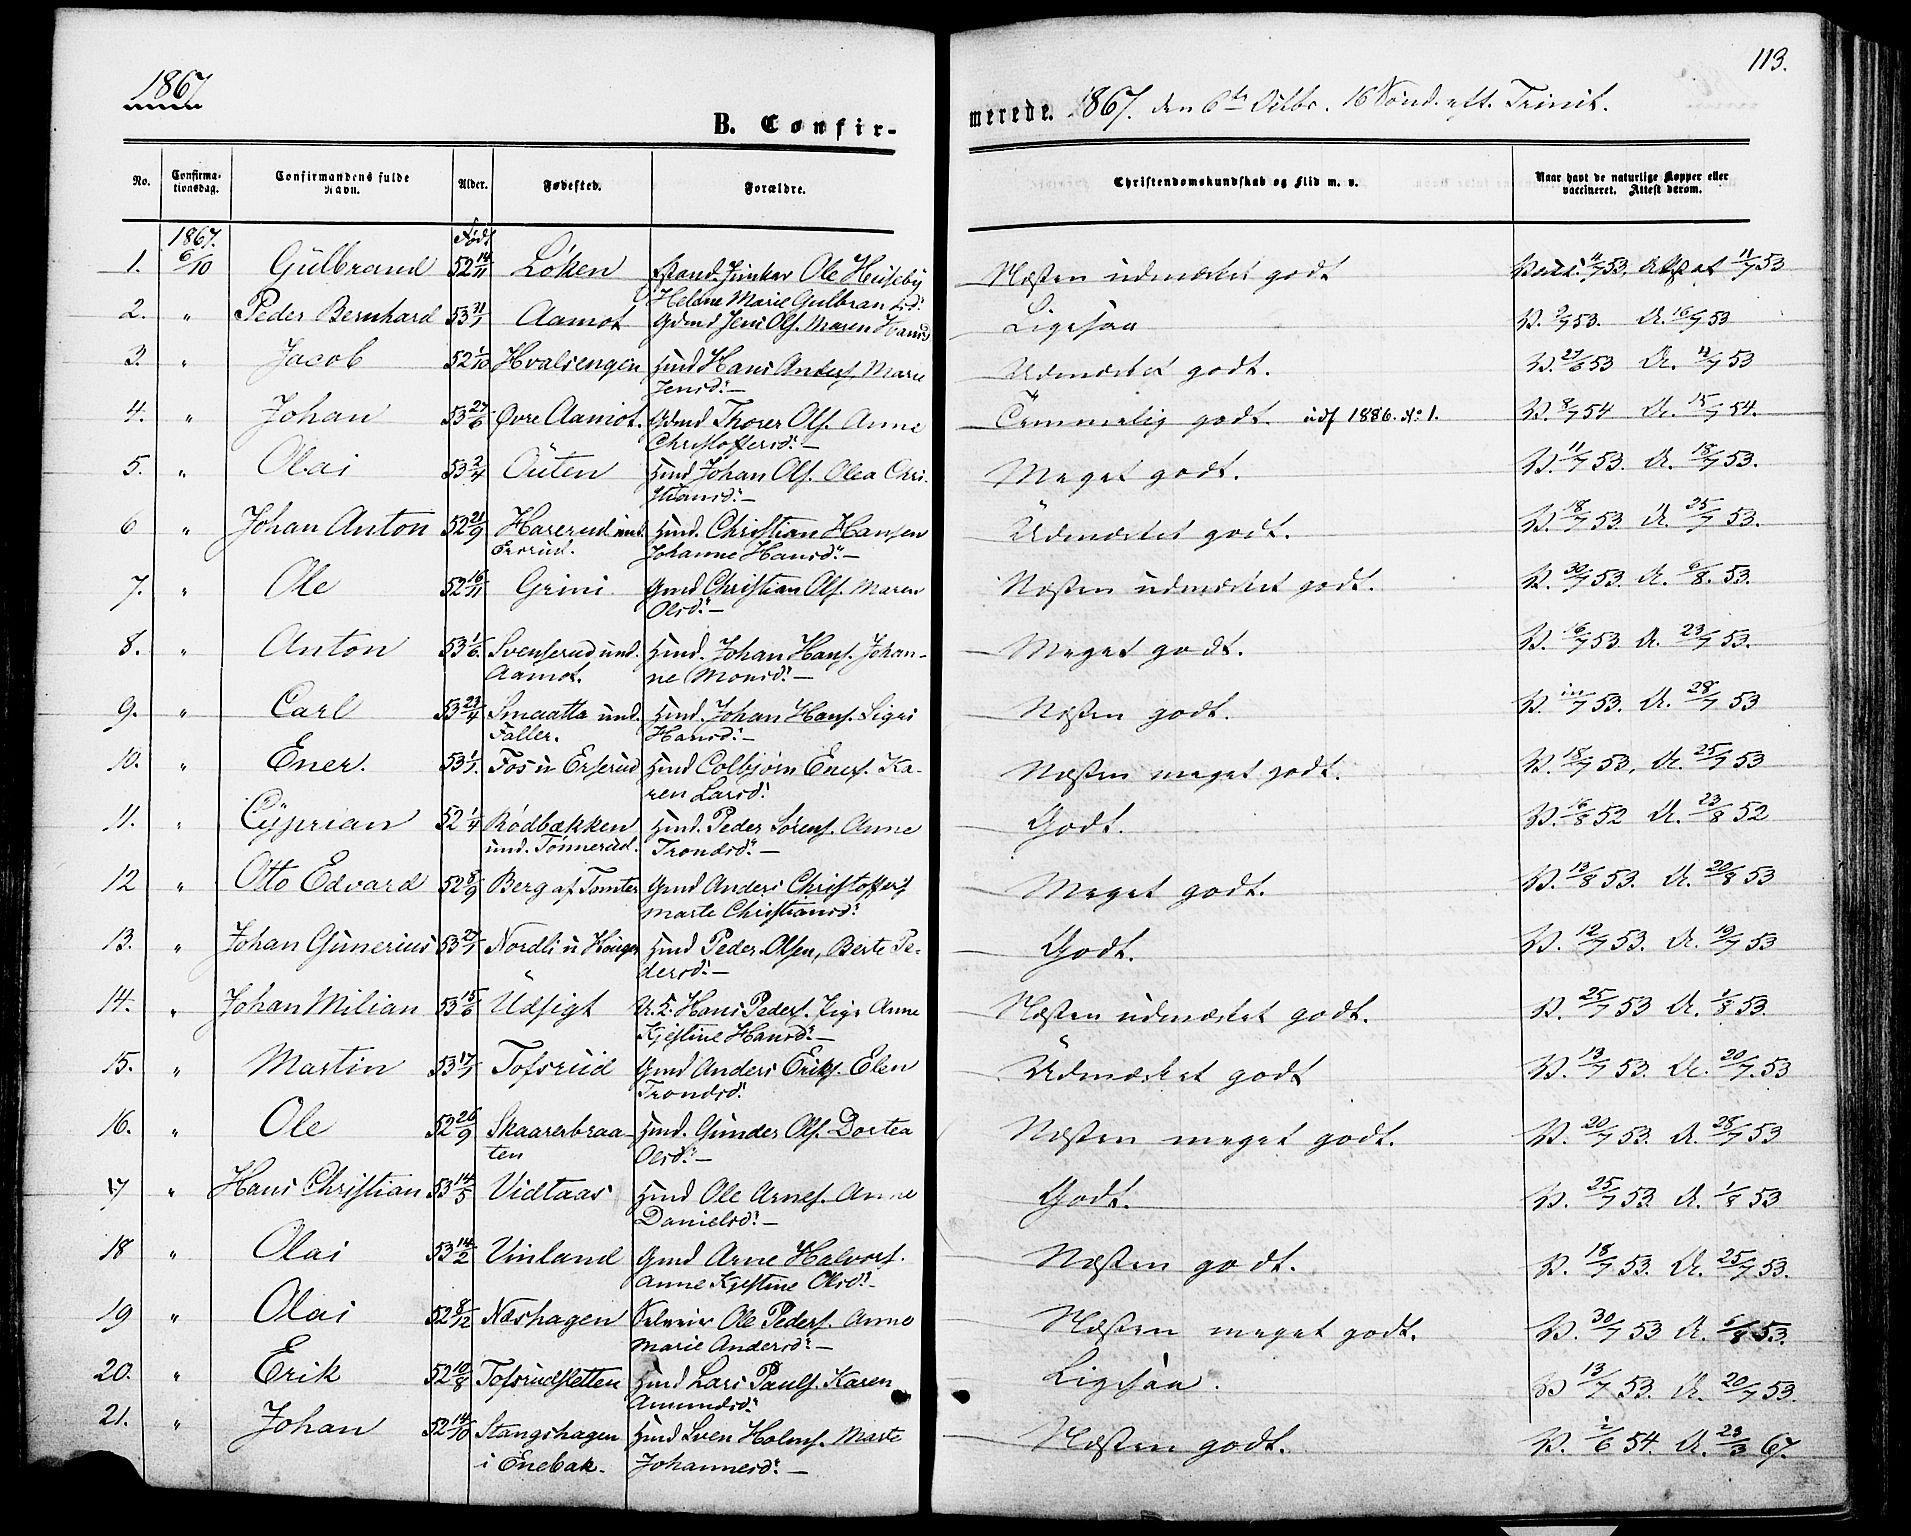 1867
B. Confir-
No. Confirma-tionsdag. Confirmandens fulde Navn. Alder. Fødested. Forældre.
1867. Født
1. 6/10 Gülbrand 52 14/11 Løken Ole Huseby
Helene Marie Gulbransd:
2. " Peder Bernhard 53 21/1 Aamot Gdmd Jens Ols. Maren Hansd
3. " Jacob 52 1/10 Hvalsengen Husd Hans Anders. Marie
Jensd: —
4. " Johan 53 27/6 Øvre Aamot. Gdmd Thorer Ols. Anne
Christoffersd: —
5. " Olai 53 2/4 Outen Husd Johan Ols. Olea Chri-
stiansd: —
6 " Johan Anton 52 21/9 Harerud und. Husd. Christian Hansen
Ererud. Johanne Hansd: —
7. " Ole 52 16/11 Grini Gmd Christian Ols. Maren
Olsd: —
8. " Anton 53 1/6. Svenserud und. Husd. Johan Hans. Johan-
Aamot. ne Monsd: —
9. " Carl 53 23/4 Smaatta und. Husd. Johan Hans. Sigri
Faller. Hansd: —
10. " Ener. 53 1/1. Fos u Erserud Husd Colbjørn Eners. Ka-
ren Larsd:
11. " Cyprian 52 1/4 Rødbækken Husd. Peder Sørens. Anne
und. Tønnerud. Trondsd: —
12 " Otto Edvard 52 8/9 Berg af Tomter Gmd Anders Christoffers
Marte Christiansd:
13. " Johan Gunerius 53 27/1 Nordli u Hauger Husd Peder Olsen, Berte Pe-
dersd: —
14. " Johan Milian 53 15/6 Udsigt U. K. Hans Peders. Pige Anne
Kjestine Hansd: —
15. " Martin 53 17/1 Tofsrud Gmd Anders Eriks. Elen
Trondsd:
16. " Ole 52 26/9 Skaarerbraa- Husd. Gunder Ols. Dortea
ten Olsd: —
17 " Hans Christian 53 14/5 Vidtaas Husd Ole Arnes. Anne
Danielsd: —
18 " Olai 53 14/2 Vinland Gmd Arne Halvors.
Anne Kjestine Olsd: —
19 " Olai 52 8/12 Næshagen Selveier Ole Peders. Anne
Marie Andersd: —
20. " Erik 52 10/8 Tofsrudsletten Husd Lars Pauls. Karen
Amundsd:
21. " Johan 52 14/10 Stangshagen Husd Sven Holms. Marte
i Enebak. Johannesd: —
113.
merede. 1867. den 6te Octbr. 16 Sønd. eft. Trinit.
Christendomskundskab og Flid m. v. Naar havt de naturlige Kopper eller vaccineret. Attest derom.
Næsten udmærket godt Vacc. 4/7 53. Attest af 11/7 53
Ligesaa V. 9/7 53. A. 16/7 53
Udmærket godt. V. 27/6 53 A. 4/7 53
Temmelig godt. udf 1886. No 1. V. 8/7 54 A. 15/7 54.
Meget godt. V. 11/7 53. A. 18/7 53.
Udmærket godt. V. 18/7 53. A. 25/7 53.
Næsten udmærket godt. V. 30/7 53. A. 6/8. 53.
Meget godt. V. 16/7 53. A. 23/7 53.
Næsten godt. V. 53. A. 28/7 53
Næsten meget godt. V. 18/7 53. A. 25/7 53
Godt. V. 16/8 52 A. 23/8 52
Meget godt. V. 13/8 53. A. 20/8 53
Godt. V. 12/7 53. A. 19/7 53
Næsten udmærket godt. V. 25/7 53 A. 1/8 53.
Udmærket godt V. 13/7 53. A. 20/7. 53
Næsten meget godt. V. 20/7 53. A. 28/7 53
Godt. V. 25/7 53. A. 1/8 53
Næsten godt. V. 18/7 53. A. 25/7 53.
Næsten meget godt. V. 30/7 53 A. 6/8 53.
Ligesaa. V 13/7 53. A. 20/7 53.
Næsten godt. V. 2/6 54. A. 23/3 67.